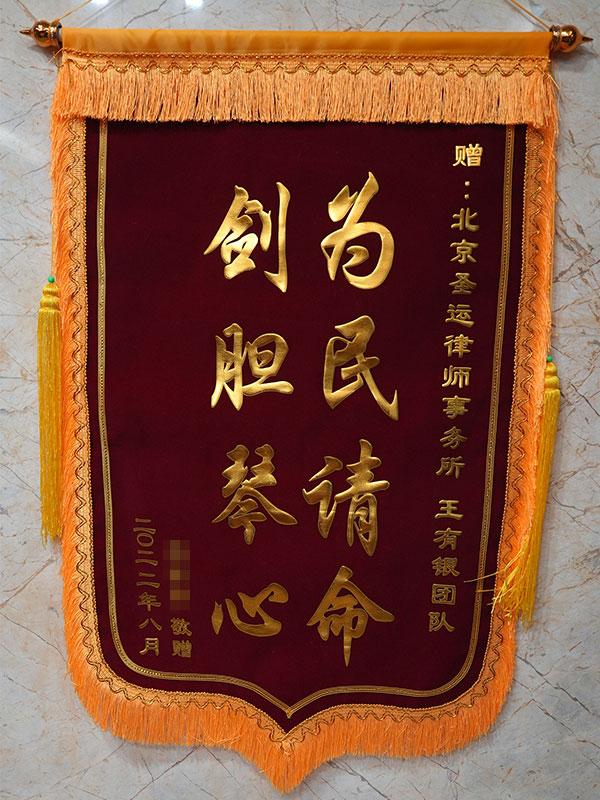 赠：北京圣运律师事务所 王有银团队
为民请命
剑胆琴心
敬赠
二〇二二年八月